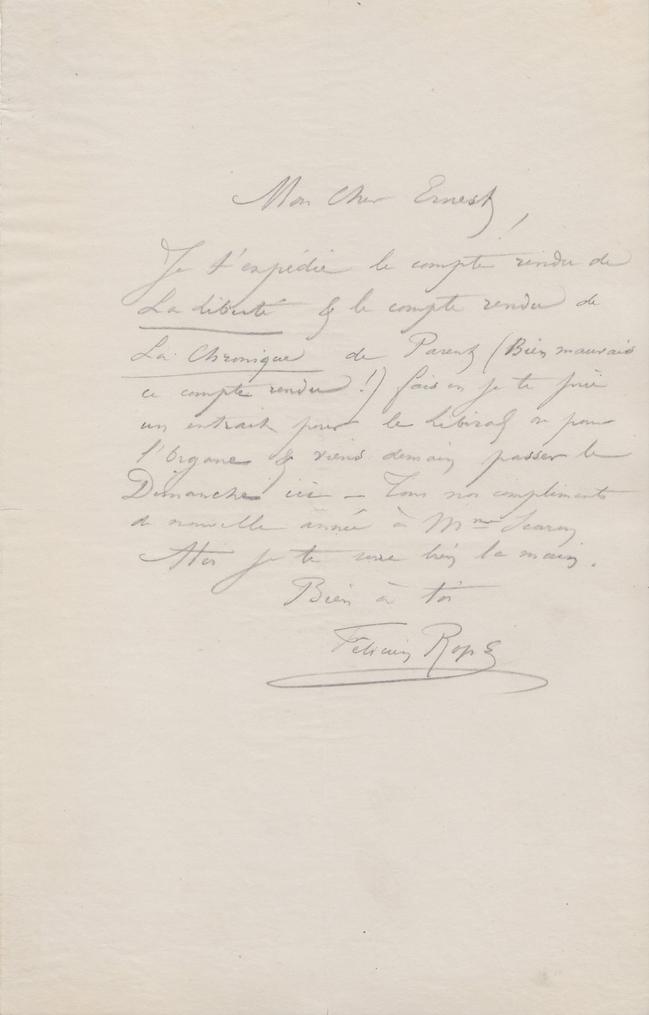 Mon Cher Ernest,
Je t'expédie le compte rendu de
La Liberté & le compte rendu de
La Chronique de Parent (Bien mauvais
ce compte rendu!) fais en je te prie
un extrait pour le Libéral ou pour
l'Organe & viens demain passer le
Dimanche ici – Tous nos compliments
de nouvelle année à Mme
je te serre bien la main.
Bien à toi
Félicien Rops